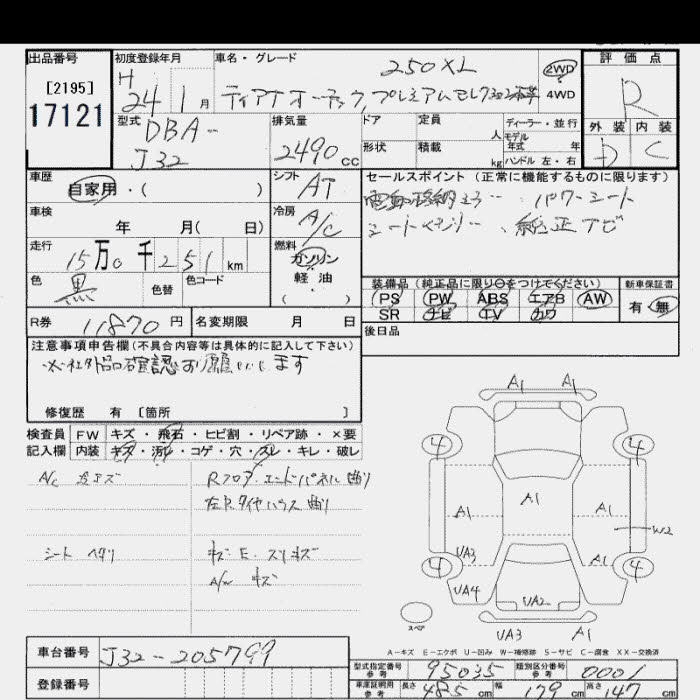 出品番号
[2195]
17121
初度登録年月
H
24 1月
車名・グレード
250XL
ティアナ オーテック、プレミアムセレクション
2WD
4WD
評価点
R
外装 内装
D C
型式
DBA-
J32
排気量
2490cc
ドア 定員 人
形状 積載 kg
ディーラー・並行
モデル
年式 年
ハンドル 左・右
車歴
自家用・( )
シフト
AT
車検
年 月( 日)
冷房
A/C
走行
15万0千251km
燃料
ガソリン
軽油
( )
色
黒
色替
色コード
セールスポイント(正常に機能するものに限ります)
電動格納ミラー ・パワーシート
シートメモリー ・純正ナビ
装備品(純正品に限り○をつけてください)
PS PW ABS エアB AW
SR ナビ TV カワ
新車保証書
有・無
R券 11870円
名変期限 月 日
後日品
注意事項申告欄(不具合内容等は具体的に記入して下さい)
※社外品確認お願いします
修復歴 有[箇所 ]
検査員 FW キズ・飛石・ヒビ割・リペア跡・×要
記入欄 内装 キズ・汚れ・コゲ・穴・スレ・キレ・破レ
A/C ガス
Rフロア、エンドパネル曲り
左R.タイヤハウス曲り
シート ヘタリ
キズ E. スリキズ
A/W キズ
A1 A1
4 4
A1
A1 A1
W2
UA3 A1
4 4
UA4 UA2
UA3 A1
スペア
A-キズ E-エクボ U-凹み W-補修跡 S-サビ C-腐食 XX-交換済
車台番号 J32-205799
登録番号
型式指定番号
参考
95035
類別区分番号
参考
0001
車庫証明用
参考
長さ 485cm 幅 179cm 高さ 147cm